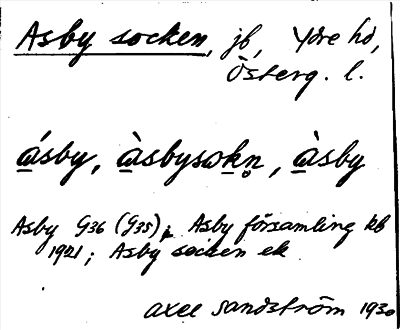 Asby socken, jb, Ydre hd,
Österg. l.
á̲sby, à̲sbysok̲n̥, à̲sby
Asby G36 (G35); Asby församling kb
1921; Asby socken ek
Axel Sandström 1930